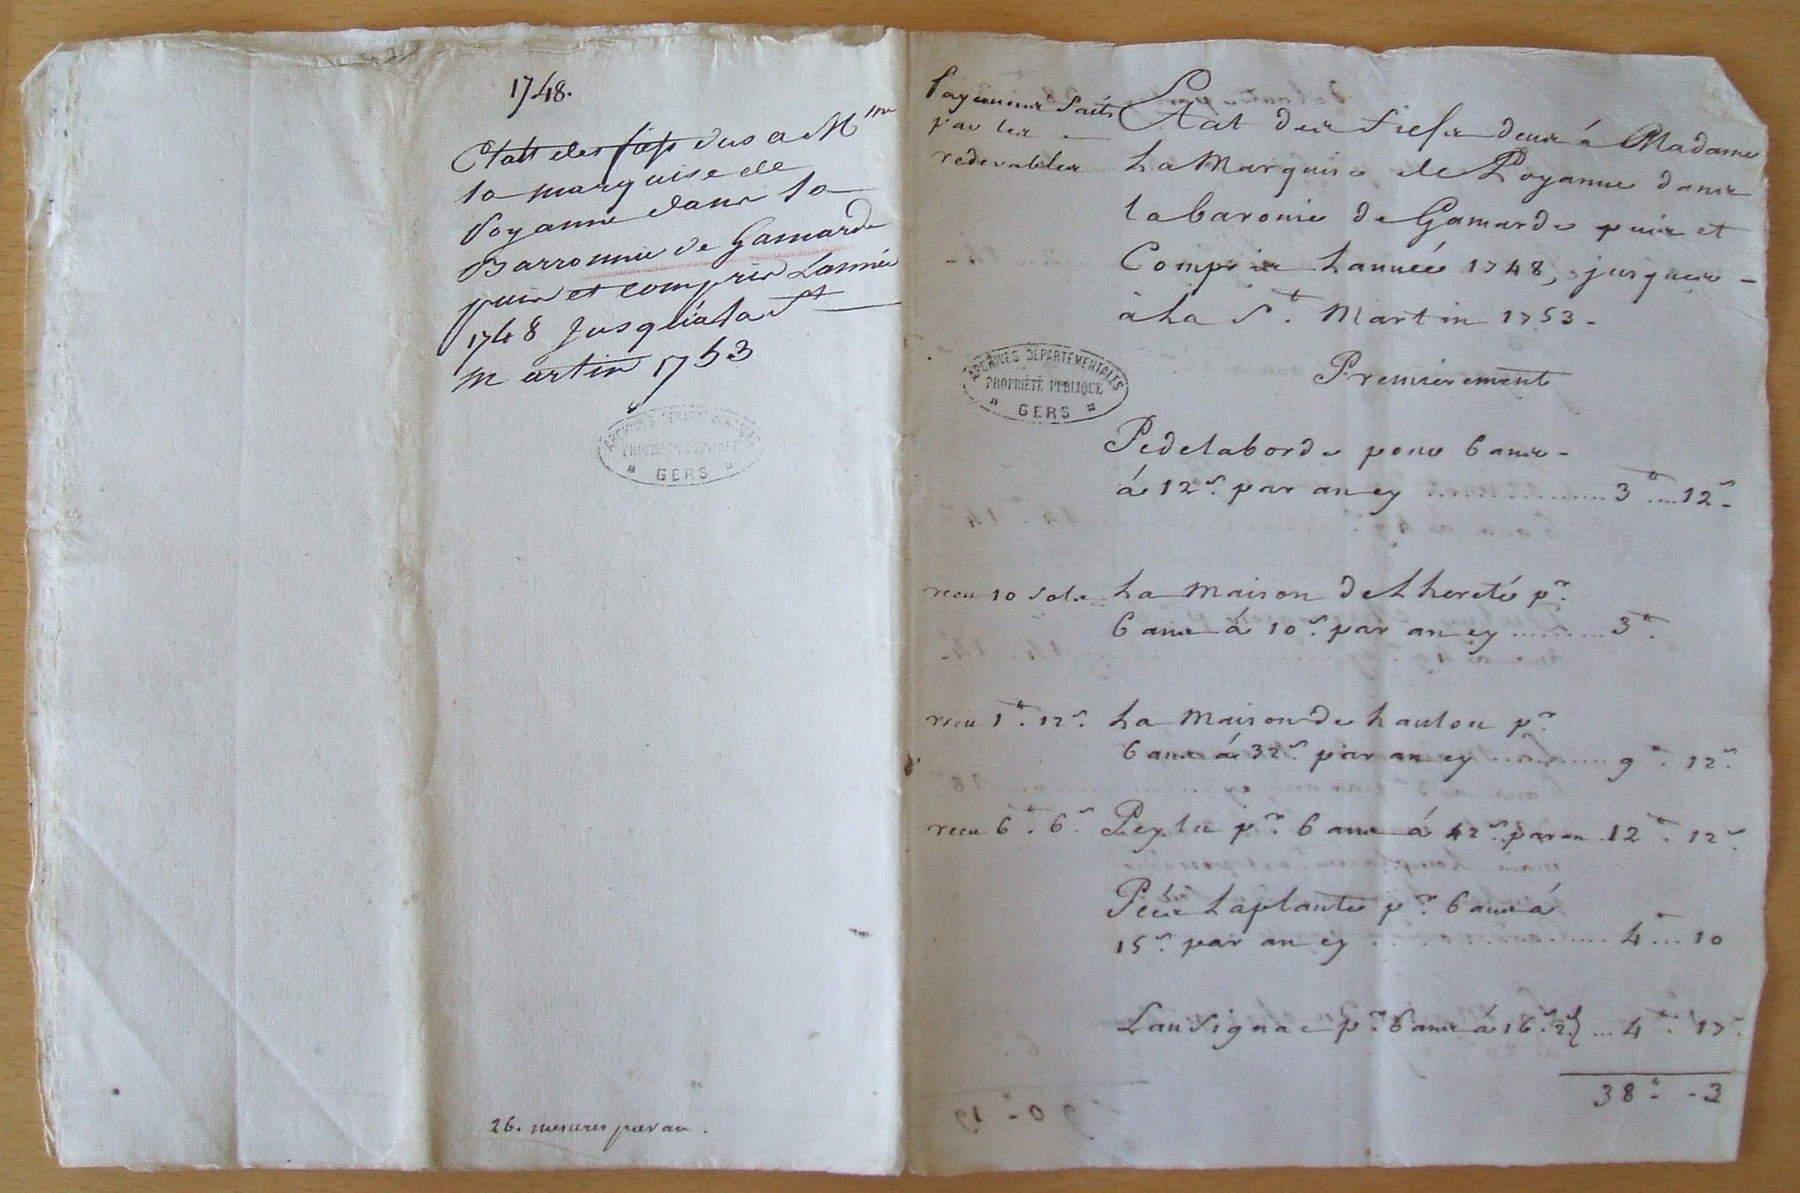 1748.
Etatt des fiefs dus a M.me
la marquise de
Poyanne dans la
Barronnie de Gamarde
puis et compris Lannée
1748 Jusqu'a la St
martin 1753
ARCHIVES DEPARTEMENTALES
PROPRIÉTÉ PUBLIQUE
GERS
26. mesures par an.
Payemens faits
par les
redevables
Etat des fiefs deus á Madame
La Marquise de Poyanne dans
la baronie de Gamarde puis et
Compris Lannée 1748, jusques
à La St. Martin 1753.
ARCHIVES DÉPARTEMENTALES
PROPRIÉTÉ PUBLIQUE
GERS
Premierement
Pedelaborde pour 6 ans
á 12s. par an cy ........ 3tt .... 12s
recu 10 sols
La Maison de Lhereté pr.
6 ans á 10s. par an cy ........ 3tt.
recu 1tt. 12s.
La Maison de hautou pr.
6 ans á 32s. par an cy ........ 9tt. 12s.
recu 6tt. 6s.
Peylu pr. 6 ans á 42s. par an 12tt. 12s
Laplante pr. 6 ans á
15s. par an cy ........ 4tt ... 10
Lausignac pr. 6 ans á 16s. 2d} ... 4tt. 17s.
38tt. - 3